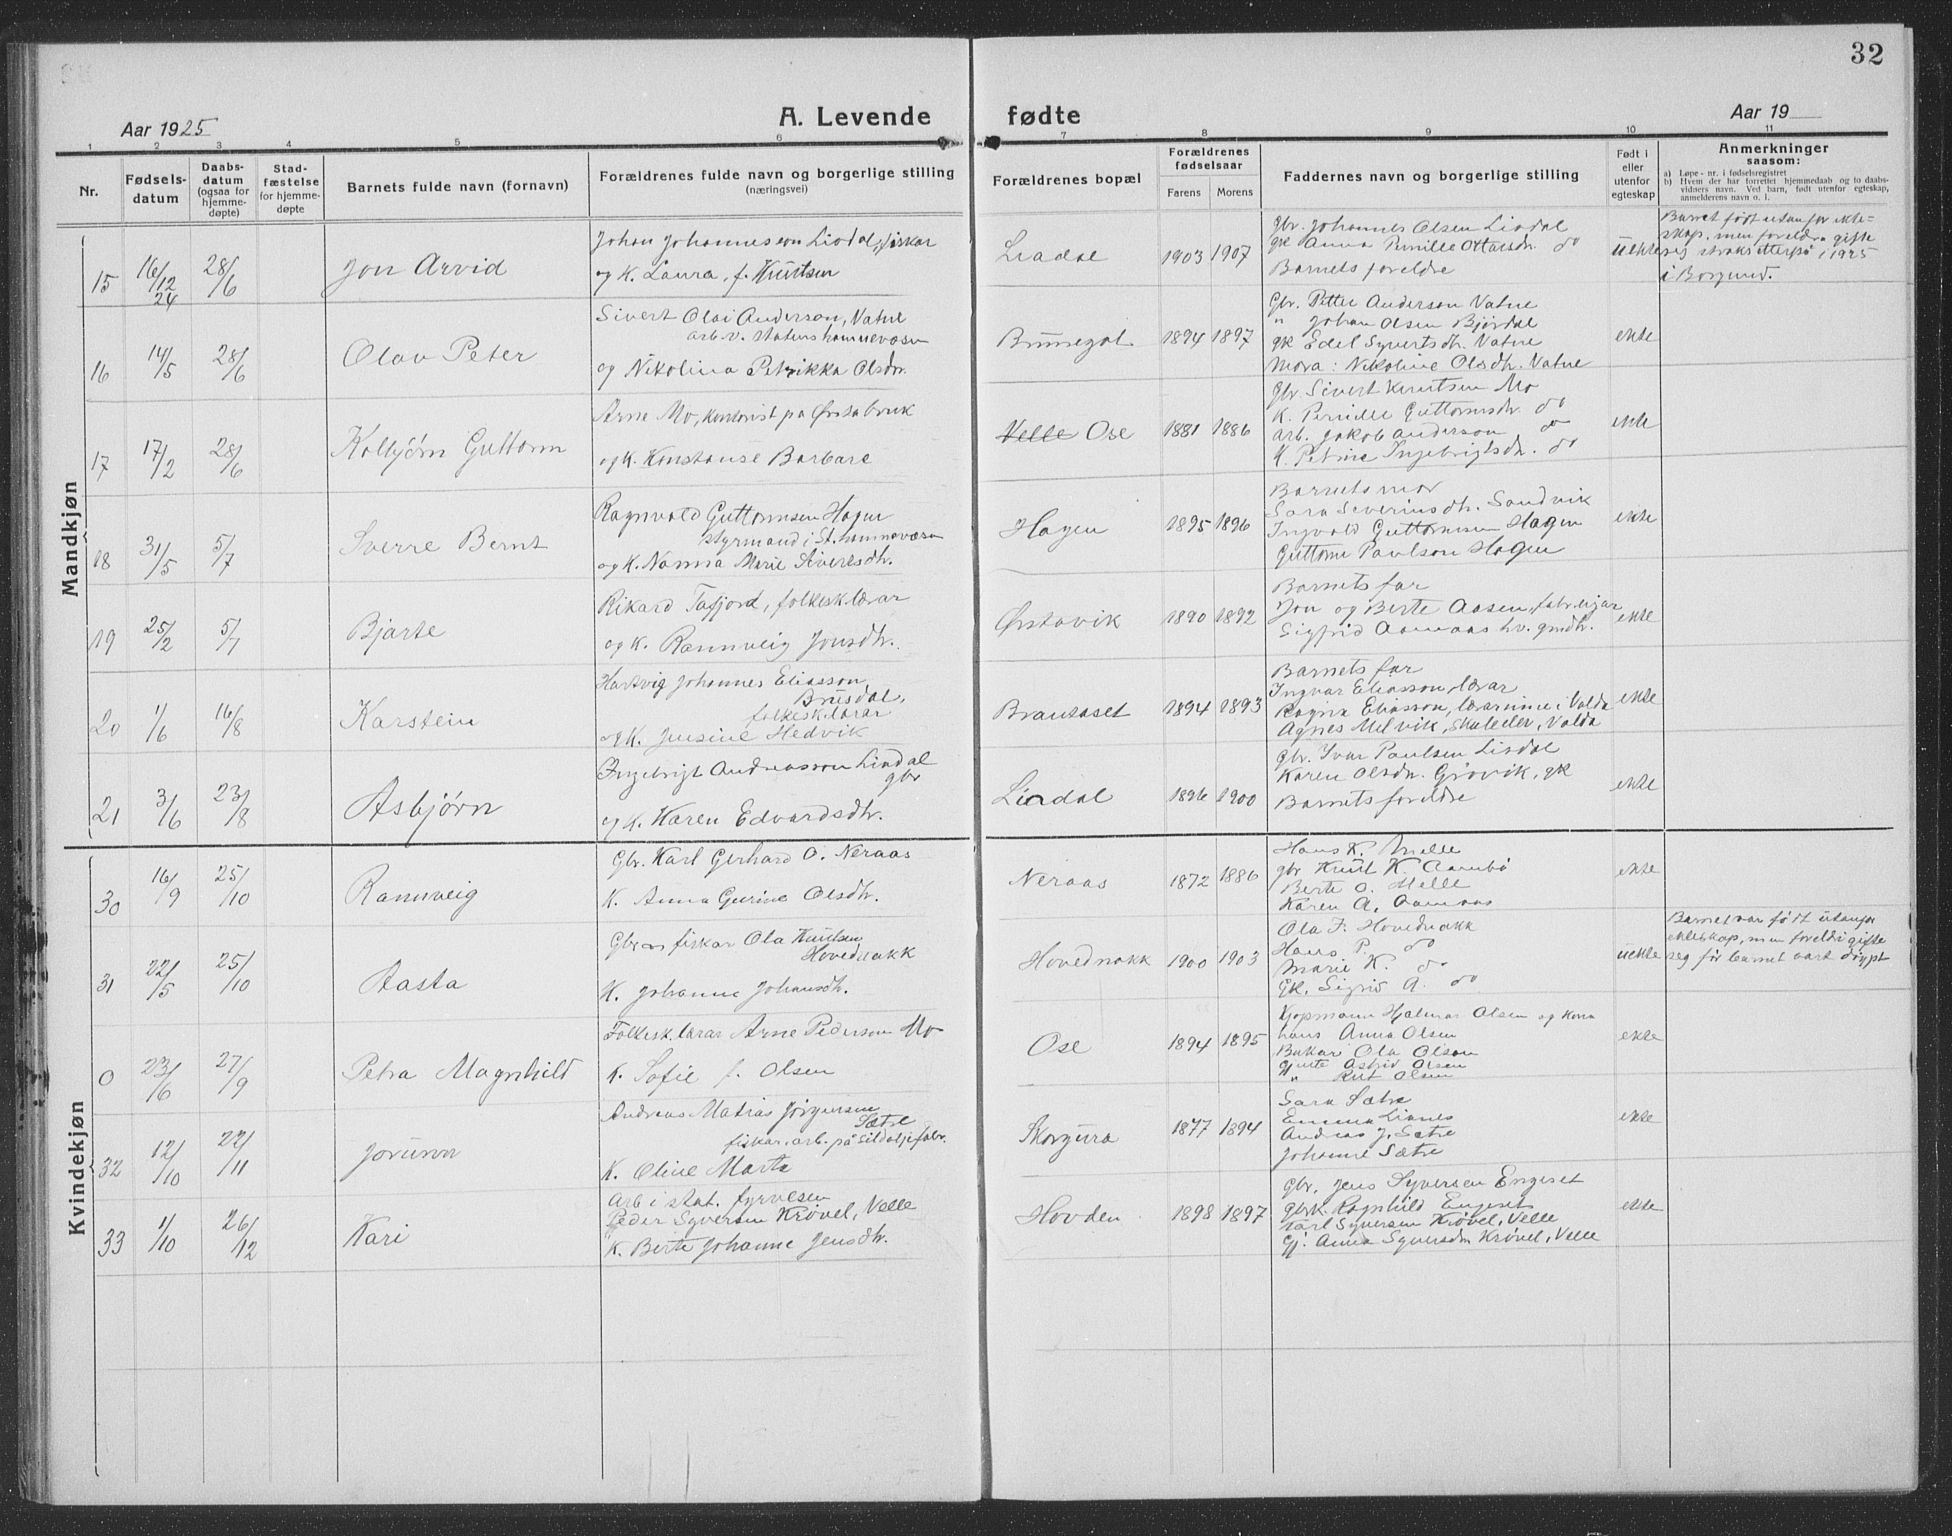 32
A. Levende fødte
Aar 1925
Aar 19
1 2 3 4 5 6 7 8 9 10 11
Nr.
Fødsels-
datum
Daabs-
datum
(ogsaa for
hjemme-
døpte)
Stad-
fæstelse
for hjemme-
døpte
Barnets fulde navn (fornavn)
Forældrenes fulde navn og borgerlige stilling
(næringsvei)
Forældrenes bopæl
Forældrenes
fødselsaar
Farens Morens
Faddernes navn og borgerlige stilling
Født i
eller
utenfor
egteskap
Anmerkninger
saasom:
a) Løpe-nr. i fødselsregistret
b) Hvem der har forrettet hjemmedaab og to daabs-
vidners navn. Ved barn, født utenfor egteskap,
anmelderens navn o. l.
Mandkjøn
15 16/12 24 28/6 Jon Arvid
Johan Johannesson Lisdal, fiskar
og K. Laura, f. Knutsen
Lisdal 1903 1907
Gbr. Johannes Olsen Lisdal
gk Anna Pernille Ottarsdr. do
Barnets foreldre
uekte
Barnet født utanfor ekte-
skap, men foreldra gifte
seg straks etterpå i 1925
i Borgund.
16 14/5 28/6 Olav Peter
Sivert Olai Anderson, Vatne
arb. v. statens havnevæsen
og Nikolina Petrikka Olsdr.
Brunegot 1894 1897
Gbr. Petter Anderson Vatne
" Johan Olsen Bjørdal
gk Edel Syvertsdr. Vatne
Mora: Nikoline Olsdr. Vatne
ekte
17 17/2 28/6 Kolbjørn Guttorm
Arne Mo, kontorist på Ørstabruk
og K. Konstanse Barbare
Velle Ose 1881 1886
Gbr. Sivert Knutsen Mo
K. Pernille Guttormsdr. do
arb. Jakob Anderson do
K. Petrine Ingebrigtsdr. do
ekte
18 31/5 5/7 Sverre Bernt
Ragnvald Guttormsen Hagen
styrmand i St. havnevæsen
og K. Nanna Marie Sivertsdr.
Hagen 1895 1896
Barnets mor
Sara Severinsdr. Sandvik
Ingvald Guttormsen Hagen
Guttorm Paulson Hagen
ekte
19 25/2 5/7 Bjarte
Rikard Tafjord, folkesk.lærar
og K. Rannveig Jonsdr.
Ørstavik 1890 1892
Barnets far
Jon og Berte Aasen, fabr.eigar
Sigfrid Aamaas hv. gmdr.
ekte
20 1/6 16/8 Karstein
Hartvig Johannes Eliasson
Brusdal,
folkesk.lærar
og K. Jensine Hedvik
Brautaset 1894 1893
Barnets far
Ingvar Eliasson, lærar
Ragna Eliasson, lærarinne i Volda
Agnes Melvik, skuleelev, Volda
ekte
21 3/6 23/8 Asbjørn
Ingebrigt Andreasson Lisdal
gbr
og K. Karen Edvardsdr.
Lisdal 1896 1900
gbr. Ivar Paulsen Lisdal
Karen Olsdr. Grøvik, gk
Barnets foreldre
ekte
Kvindekjøn
30 16/9 25/10 Rannveig
Gbr. Karl Gerhard O. Neraas
K. Anna Gurine Olsdr.
Neraas 1872 1886
Hans K. Melle
gbr Knut K. Aambø
Berte O. Melle
Karen A. Aamaas
ekte
31 22/5 25/10 Aasta
Gbr og fiskar Ola Knutsen
Hovednakk
K. Johanne Johansdr.
Hovednakk 1900 1903
Ola F. Hovednakk
Hans P. do
Marie K. do
Gk. Sigrid A. do
uekte
Barnet var født utanfor
ekteskap, men foreldri gifte
seg før barnet vart døypt
0 23/6 27/9 Petra Magnhild
Folkesk.lærar Arne Pederson Mo
K. Sofie f. Olsen
Ose 1894 1895
Kjøpmann Hjalmar Olsen og kona
hans Anna Olsen
Bakar Ola Olson
Gjente Astrid Olsen
" Rut Olsen
ekte
32 12/10 22/11 Jorunn
Andreas Matias Jørgensen
Sætre
fiskar, arb. på Sildoljefabr.
K. Oline Marta
Skorgura 1877 1894
Sara Sætre
Emma Lianes
Andreas J. Sætre
Johanne Sætre
ekte
33 1/10 26/12 Kari
Arb i stat. fyrvesen
Peder Syversen Krøvel, Velle
K. Berte Johanne Jensdr.
Hovden 1898 1897
Gbr. Jens Syversen Engeset
gbrk. Ragnhild Engeset
Karl Syversen Krøvel, Velle
Gj. Anna Syversdr Krøvel, Velle
ekte